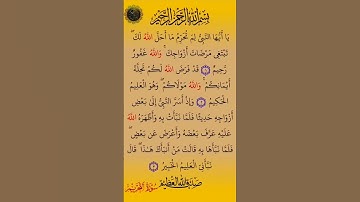 بسم الله الرحمن الرحيم
يَا أَيُّهَا النَّبِيُّ لِمَ تُحَرِّمُ مَا أَحَلَّ اللَّهُ لَكَ
تَبْتَغِي مَرْضَاتَ أَزْوَاجِكَ وَاللَّهُ غَفُورٌ
رَحِيمٌ ۝ قَدْ فَرَضَ اللَّهُ لَكُمْ تَحِلَّةَ
أَيْمَانِكُمْ وَاللَّهُ مَوْلَاكُمْ وَهُوَ الْعَلِيمُ
الْحَكِيمُ ۝ وَإِذْ أَسَرَّ النَّبِيُّ إِلَىٰ بَعْضِ
أَزْوَاجِهِ حَدِيثًا فَلَمَّا نَبَّأَتْ بِهِ وَأَظْهَرَهُ اللَّهُ
عَلَيْهِ عَرَّفَ بَعْضَهُ وَأَعْرَضَ عَن بَعْضٍ
فَلَمَّا نَبَّأَهَا بِهِ قَالَتْ مَنْ أَنبَأَكَ هَٰذَا قَالَ
نَبَّأَنِيَ الْعَلِيمُ الْخَبِيرُ ۝
صدق الله العظيم
سورة التحريم